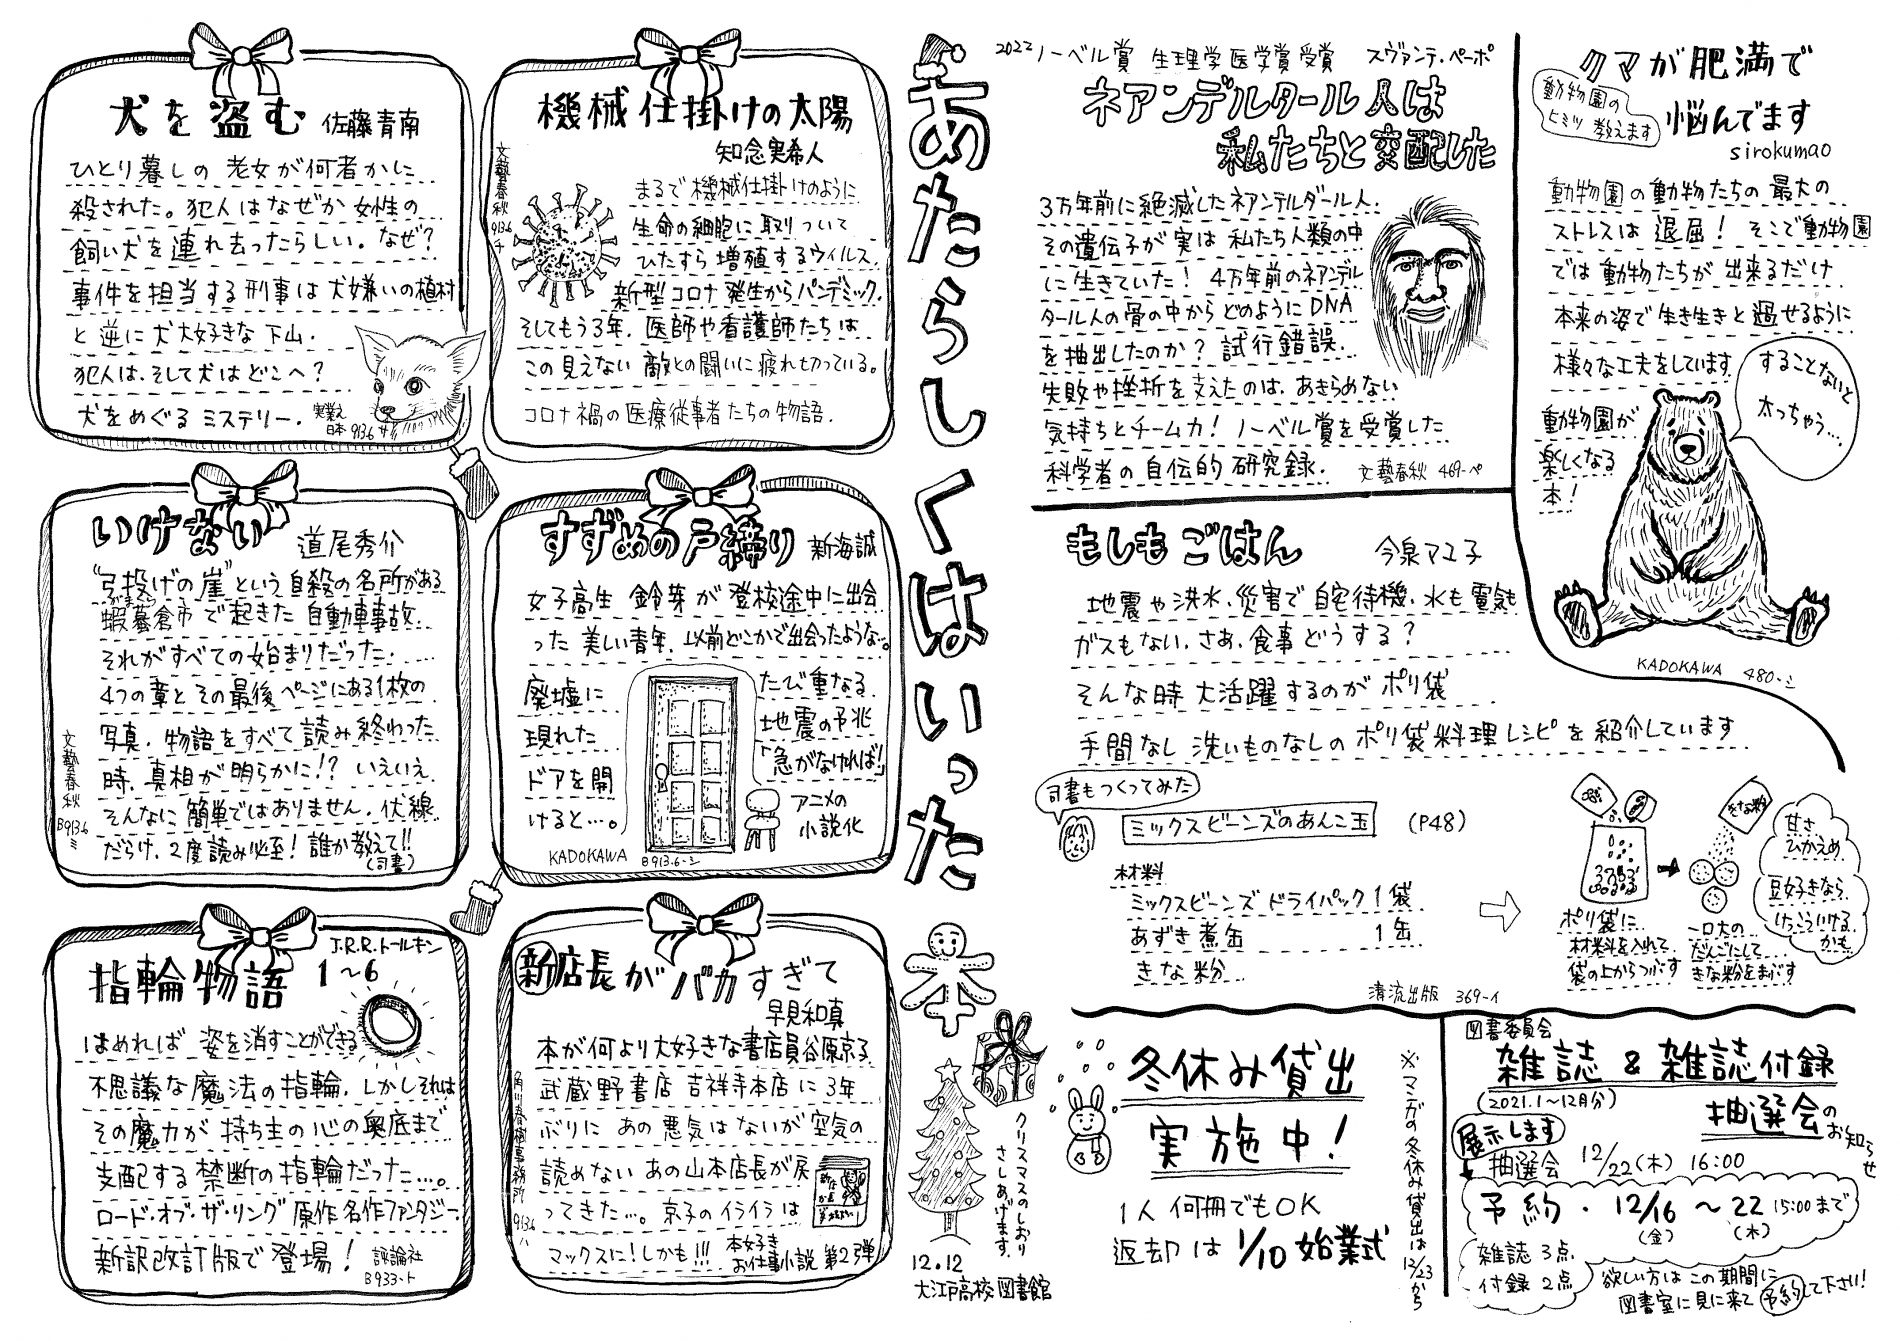 あたらしくはいった本
犬を盗む 佐藤青南
ひとり暮しの 老女が何者かに
殺された。犯人はなぜか 女性の
飼い犬を連れ去ったらしい。なぜ?
事件を担当する刑事は 犬嫌いの植村
と逆に 犬大好きな 下山.
犯人は、そして犬はどこへ?
犬をめぐる ミステリー.
実業之
日本 913.6 サ
機械仕掛けの太陽
知念実希人
文藝春秋 913.6 チ
まるで 機械仕掛けのように
生命の細胞に 取りついて
ひたすら 増殖するウィルス.
新型コロナ 発生からパンデミック.
そしてもう3年. 医師や看護師たちは
この見えない 敵との闘いに 疲れ切っている。
コロナ禍の医療従事者たちの物語.
いけない 道尾秀介
"弓投げの崖"という 自殺の名所がある
蝦蟇倉市で起きた 自動車事故...
それがすべての始まりだった.
4つの章と その最後 ページにある1枚の
写真. 物語をすべて 読み終わった
時. 真相が明らかに!? いえいえ
そんなに 簡単ではありません. 伏線
だらけ. 2度読み必至! 誰か教えて!!
(司書)
文藝春秋
B913.6 ミ
すずめの戸締り 新海誠
女子高生 鈴芽が 登校途中に出会
った 美しい青年. 以前どこかで出会ったような...。
廃墟に
現れた
ドアを開
けると...。
たび重なる
地震の予兆
「急がなければ!」
アニメの
小説化
KADOKAWA B913.6-シ
指輪物語 1〜6
J.R.R.トールキン
はめれば 姿を消すことができる
不思議な魔法の指輪. しかしそれは
その魔力が 持ち主の心の奥底まで
支配する 禁断の指輪だった...。
ロード・オブ・ザ・リング 原作 名作ファンタジー.
新訳改訂版で 登場! 評論社
B933-ト
新店長がバカすぎて
早見和真
本が何より大好きな書店員谷原京子.
武蔵野書店 吉祥寺本店に 3年
ぶりに あの 悪気はないが 空気の
読めない あの山本店長が戻
ってきた...。 京子のイライラは
マックスに! しかも!!! 本好き
お仕事小説 第2弾
角川春樹事務所 913.6 ハ
クリスマスのしおり
さしあげます.
12.12
大江戸高校図書館
2022ノーベル賞 生理学医学賞受賞 スヴァンテ・ペーボ
ネアンデルタール人は
私たちと交配した
3万年前に絶滅したネアンデルタール人.
その遺伝子が 実は 私たち人類の中
に生きていた! 4万年前のネアンデル
タール人の骨の中から どのようにDNA
を抽出したのか? 試行錯誤.
失敗や挫折を支えたのは. あきらめない
気持ちとチーム力! ノーベル賞を受賞した
科学者の 自伝的 研究録. 文藝春秋 469-ペ
クマが肥満で
悩んでます
動物園の
ヒミツ 教えます
sirokumao
動物園の動物たちの 最大の
ストレスは 退屈! そこで動物園
では 動物たちが 出来るだけ
本来の姿で 生き生きと 過せるように
様々な工夫をしています.
動物園が
楽しくなる
本!
することないと
太っちゃう...
KADOKAWA 480-シ
もしも ごはん 今泉マユ子
地震や洪水. 災害で 自宅待機. 水も電気も
ガスもない. さあ. 食事どうする?
そんな時 大活躍するのが ポリ袋
手間なし 洗いものなしの ポリ袋料理レシピを紹介しています
司書もつくってみた
ミックスビーンズのあんこ玉 (P48)
材料
ミックスビーンズ ドライパック 1袋
あずき煮缶 1缶
きな粉
ポリ袋に
材料を入れて.
袋の上からつぶす
きな粉
一口大の
だんごにして
きな粉をまぶす
甘さ
ひかえめ
豆好きなら
けっこういける
かも
清流出版 369-イ
冬休み貸出
実施中!
1人 何冊でもOK
返却は 1/10 始業式
※マンガの冬休み貸出は 12/23から
図書委員会
雑誌 & 雑誌付録
(2021.1〜12月分)
抽選会のお知らせ
展示します
抽選会 12/22(木) 16:00
予約・ 12/16 〜 22 15:00まで
(金) (木)
雑誌 3点
付録 2点
欲しい方は この期間に
図書室に見に来て 予約して下さい!